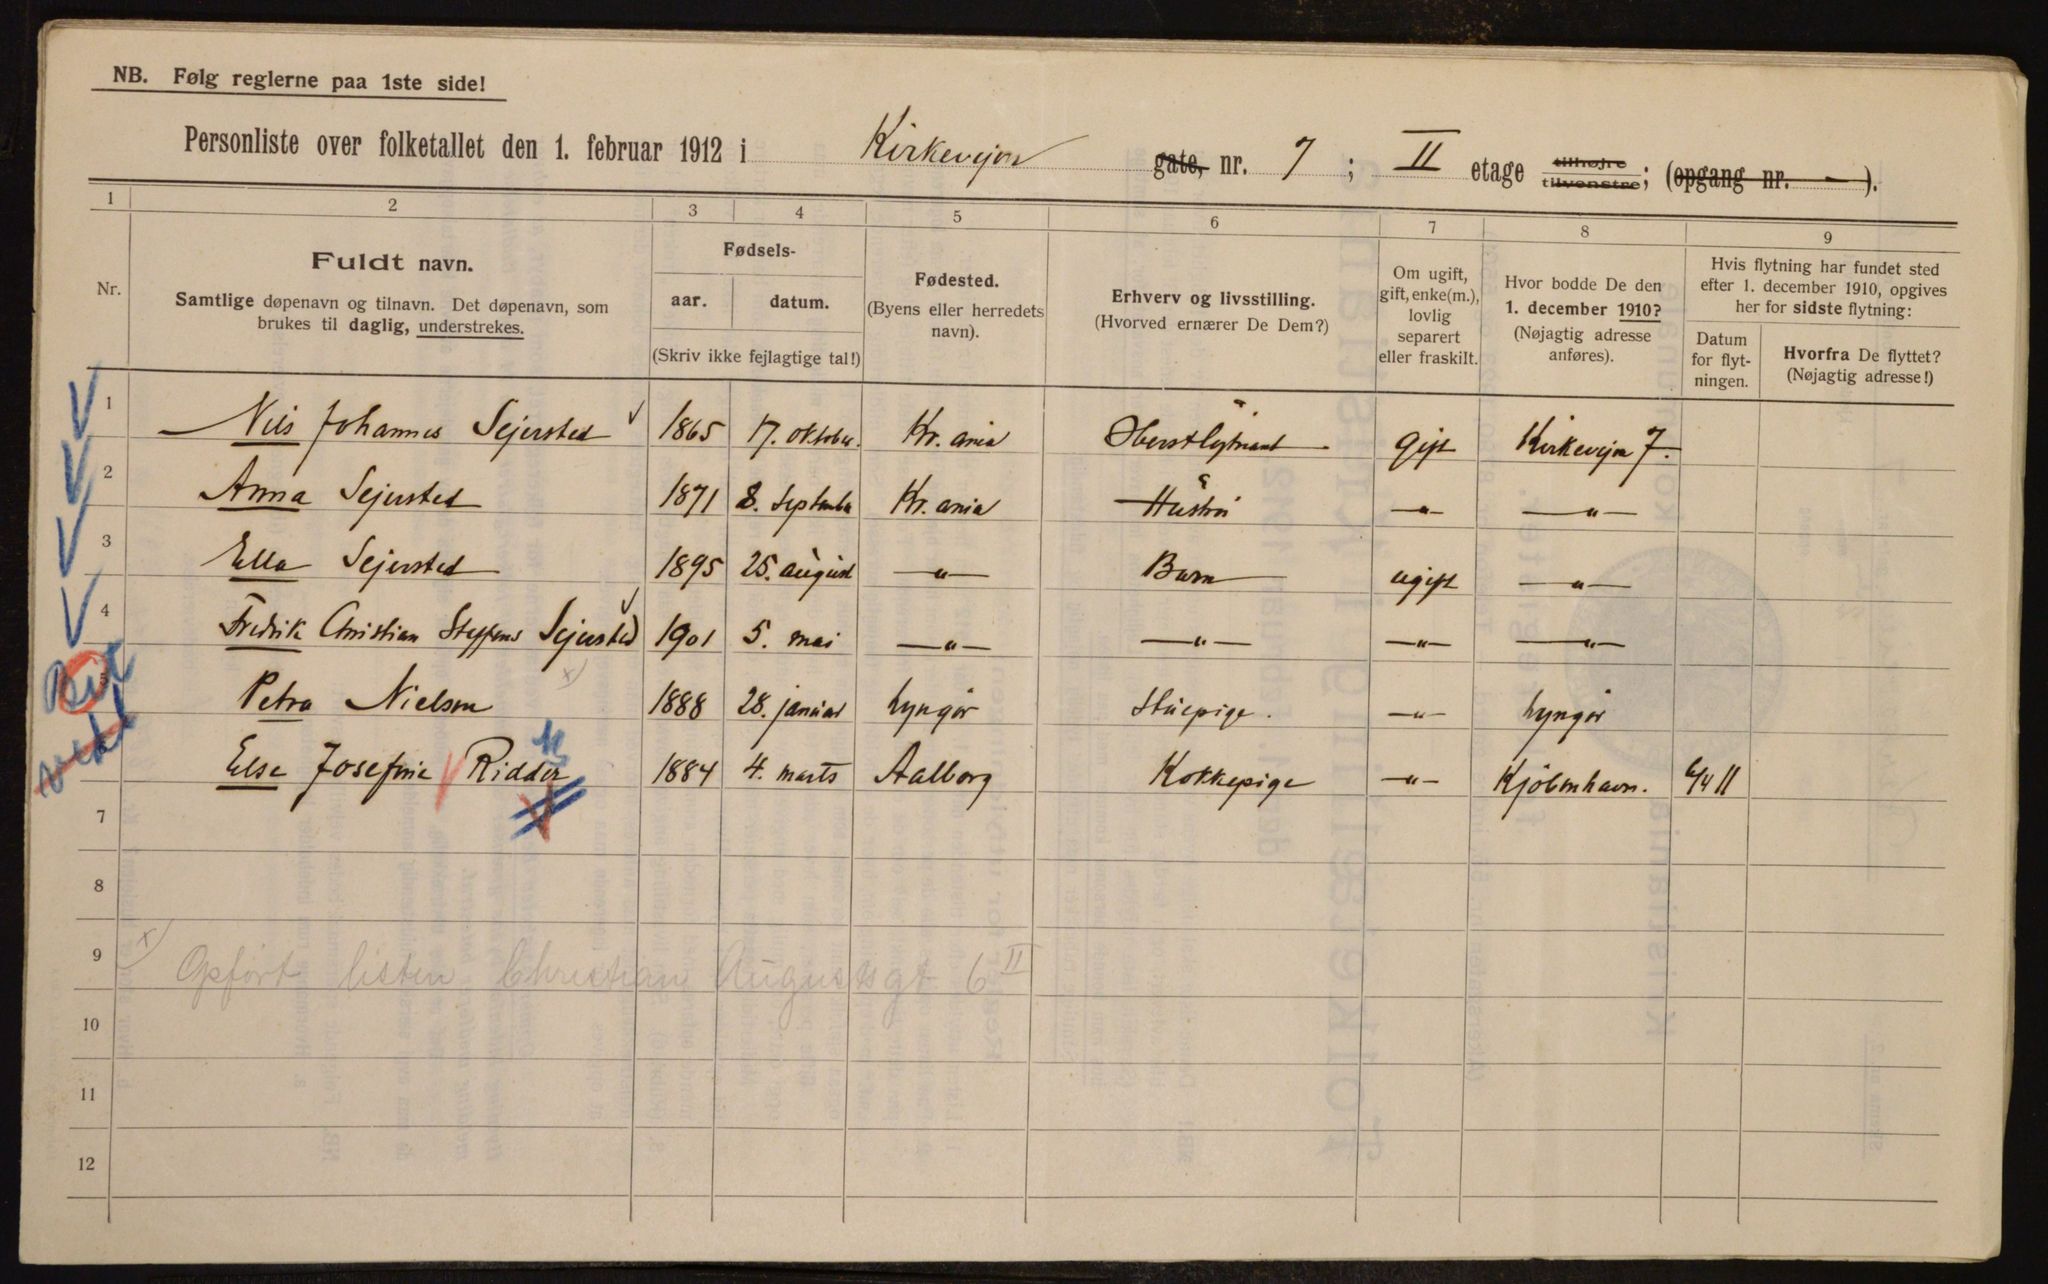 NB. Følg reglerne paa 1ste side!
Personliste over folketallet den 1. februar 1912 i Kirkevejen gate, nr. 7; II etage tilhøjre tilvenstre; (opgang nr. — ).
1 2 3 4 5 6 7 8 9
Nr.
Fuldt navn.
Samtlige døpenavn og tilnavn. Det døpenavn, som
brukes til daglig, understrekes.
Fødsels-
aar. datum.
(Skriv ikke fejlagtige tal!)
Fødested.
(Byens eller herredets
navn).
Erhverv og livsstilling.
(Hvorved ernærer De Dem?)
Om ugift,
gift, enke(m.),
lovlig
separert
eller fraskilt.
Hvor bodde De den
1. december 1910?
(Nøjagtig adresse
anføres).
Hvis flytning har fundet sted
efter 1. december 1910, opgives
her for sidste flytning:
Datum
for flyt-
ningen.
Hvorfra De flyttet?
(Nøjagtig adresse!)
1 Nils Johannes Sejersted 1865 17. oktober. Kr.ania Oberstløjtnant gift Kirkevejen 7.
2 Anna Sejersted 1871 8. September Kr.ania Hustru —„— —„—
3 Ella Sejersted 1895 25. august —„— Barn ugift —„—
4 Fredrik Christian Steffens Sejersted 1901 5. mai —„— —„— —„— —„—
5 Petra Nielsen x) 1888 28. januar Lyngør Stuepige. —„— Lyngør
Else Josefine Ridder 1884 4. marts Aalborg Kokkepige —„— Kjöbenhavn. 6/4 11
7
8
9
x) Opført listen Christian Augustsgt 6 II
10
11
12